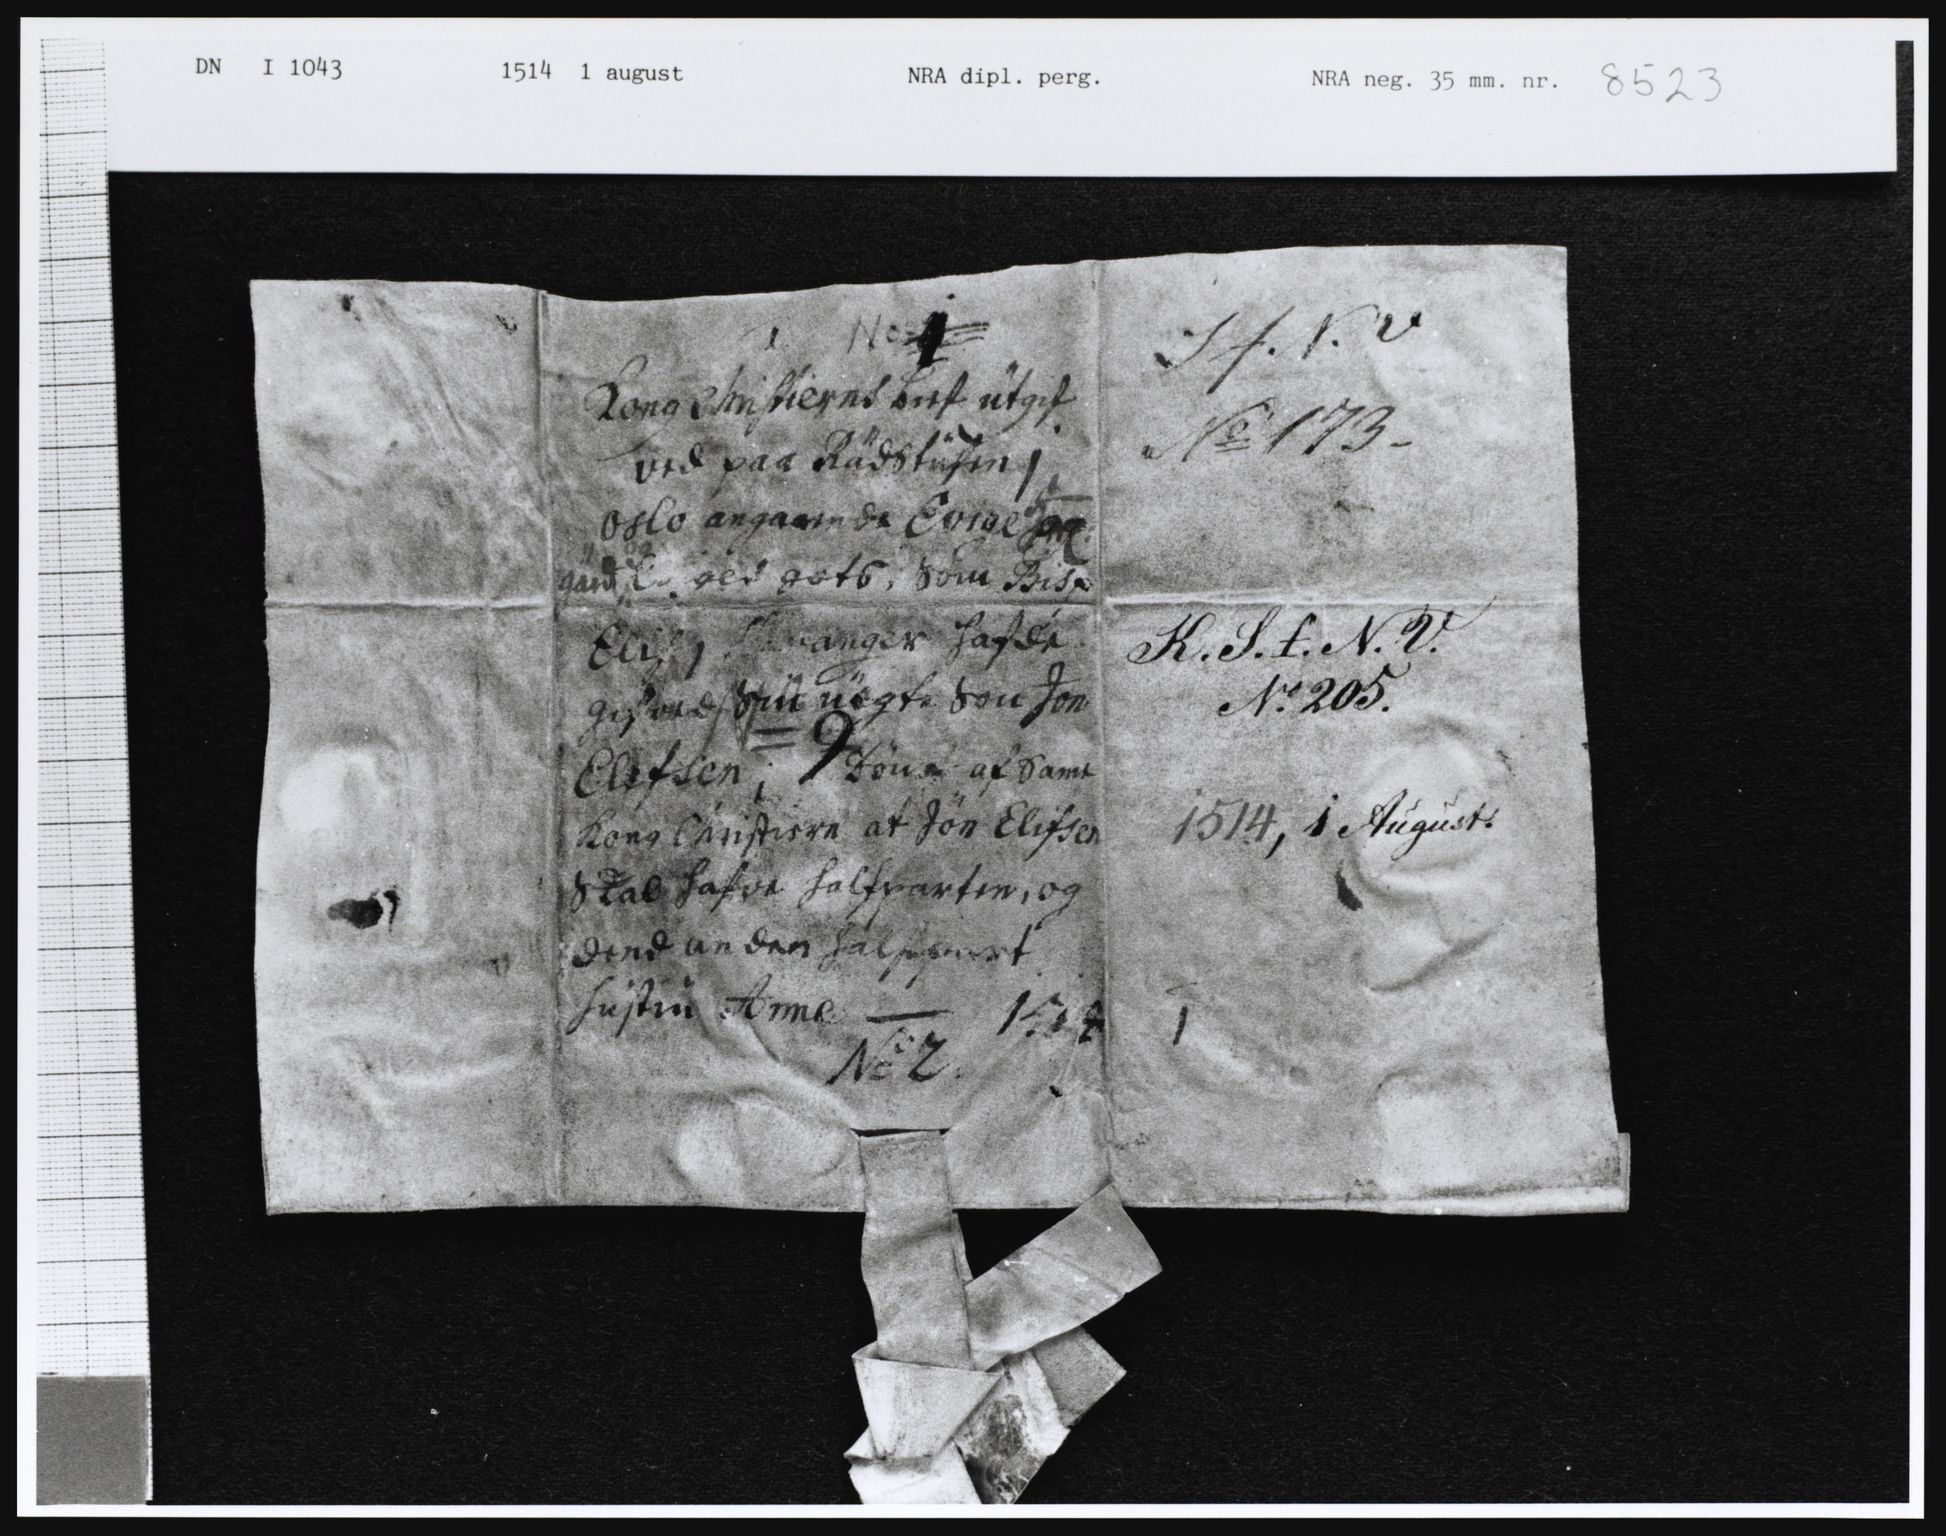 DN I 1043 1514 1 august NRA dipl. perg. NRA neg. 35 mm. nr. 8523
1. No 1
Kong Christierns bref ütgif
ved paa Rådstüfen j
Oslo angaaende Evige
gärd gots, som Bisp
Elif j Stavanger hafde
gifved sin üegte Son Jon
Elifsen, Dömt af Samt
Kong Christiern at Jön Elifsen
Skal hafve halfparten, og
dend anden halfpart
hustru Anne — 1514
No 2.
S f. N. V
No 173-
K. S. f. N. V.
No 205.
1514, 1 August.
1